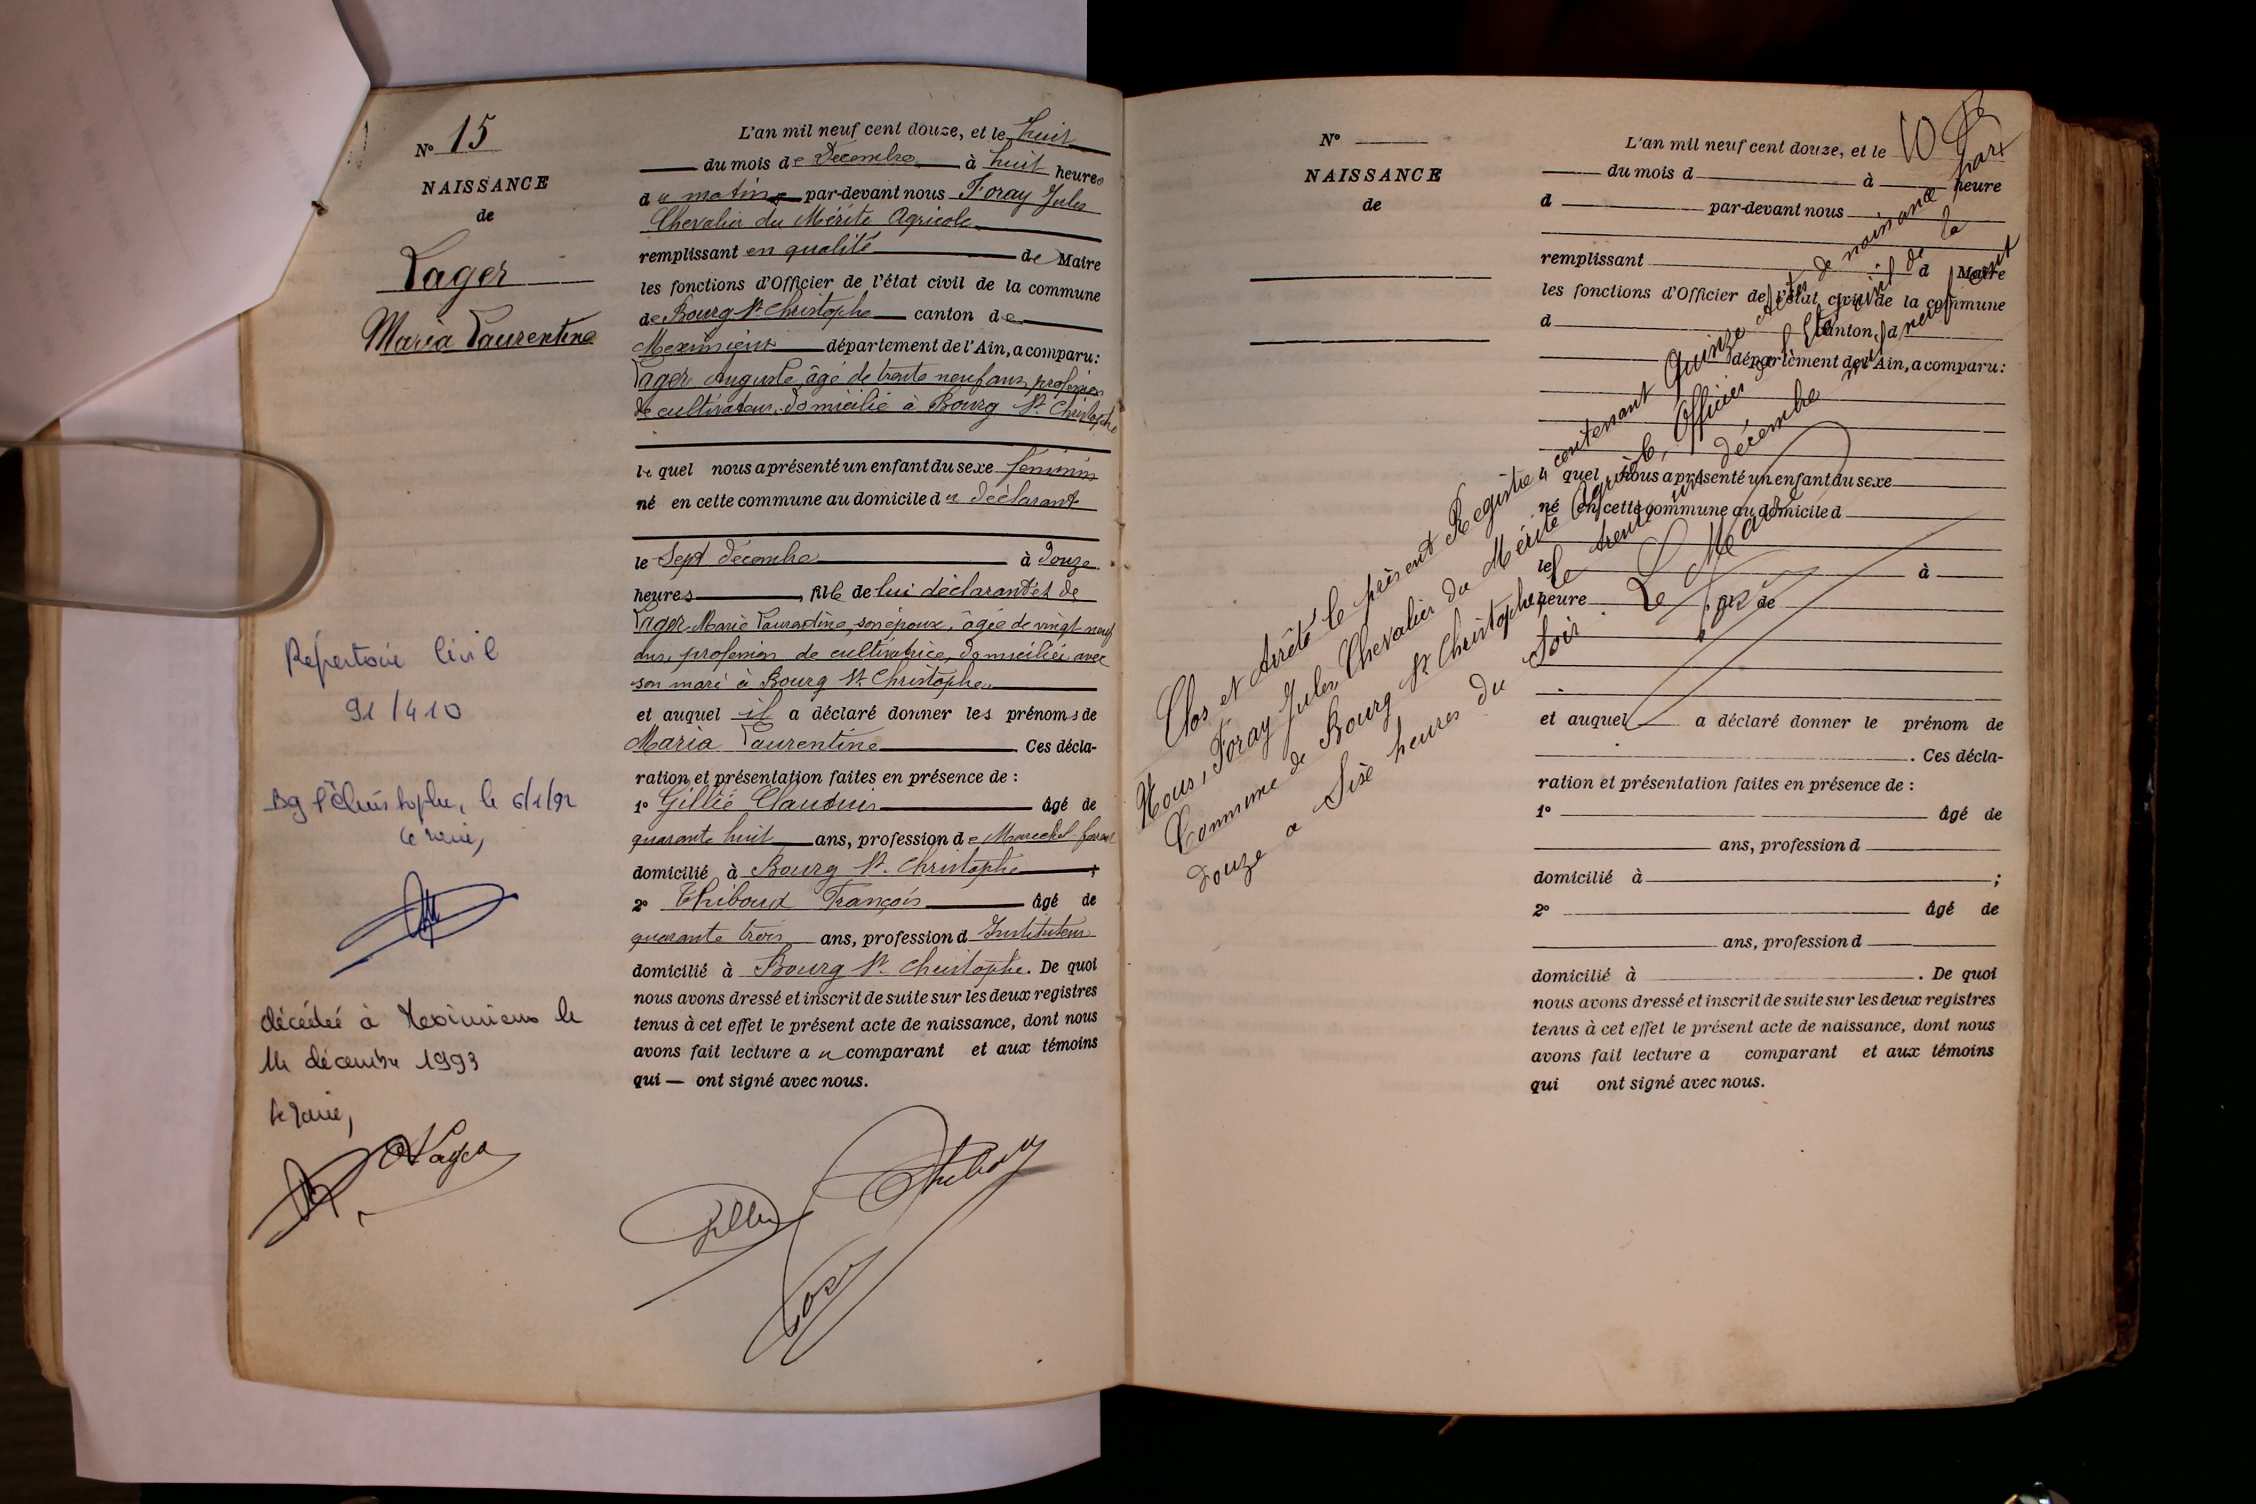 N° 15
NAISSANCE
de
Lager
Maria Laurentine
Répertoire Civil
91/410
Bg St Christophe, le 6/1/92
le maire,
décédée à Meximieux le
14 décembre 1993
le maire,
L'an mil neuf cent douze, et le huit
du mois de Décembre à huit heures
du matin par-devant nous Foray Jules
Chevalier du Mérite Agricole
remplissant en qualité de Maire
les fonctions d'Officier de l'état civil de la commune
de Bourg St Christophe canton de
Meximieux département de l'Ain, a comparu:
Lager Auguste, âgé de trente neuf ans, profession
de cultivateur, domicilié à Bourg St Christophe
lequel nous a présenté un enfant du sexe féminin
né en cette commune au domicile du déclarant
le Sept décembre à douze
heures, fille de lui déclarant et de
Lager Marie Laurentine, son épouse, âgée de vingt-neuf
ans, profession de cultivatrice, domiciliée avec
son mari à Bourg St Christophe
et auquel il a déclaré donner les prénoms de
Maria Laurentine. Ces décla-
ration et présentation faites en présence de :
1° Gillié Claudius âgé de
quarante huit ans, profession de Marechal-ferrant
domicilié à Bourg St Christophe
2° Thiboud François âgé de
quarante trois ans, profession d Instituteur
domicilié à Bourg St Christophe. De quoi
nous avons dressé et inscrit de suite sur les deux registres
tenus à cet effet le présent acte de naissance, dont nous
avons fait lecture au comparant et aux témoins
qui — ont signé avec nous.
Lager
Thiboud
Gillié
Foray
N°
NAISSANCE
de
L'an mil neuf cent douze, et le
du mois d à heure
d par-devant nous
remplissant d Maire
les fonctions d'Officier de l'état civil de la commune
d canton d
département de l'Ain, a comparu:
quel nous a présenté un enfant du sexe
né en cette commune au domicile d
le à
heure fil de
et auquel a déclaré donner le prénom de
. Ces décla-
ration et présentation faites en présence de :
1° âgé de
ans, profession d
domicilié à ;
2° âgé de
ans, profession d
domicilié à . De quoi
nous avons dressé et inscrit de suite sur les deux registres
tenus à cet effet le présent acte de naissance, dont nous
avons fait lecture a comparant et aux témoins
qui ont signé avec nous.
Clos et Arrêté le présent Registre contenant Quinze Actes de naissance par
Nous, Foray Jules, Chevalier du Mérite Agricole, Officier de l'Etat civil de la
Commune de Bourg St Christophe, le trente un décembre mil neuf cent
douze à Six heures du Soir.
Le Maire